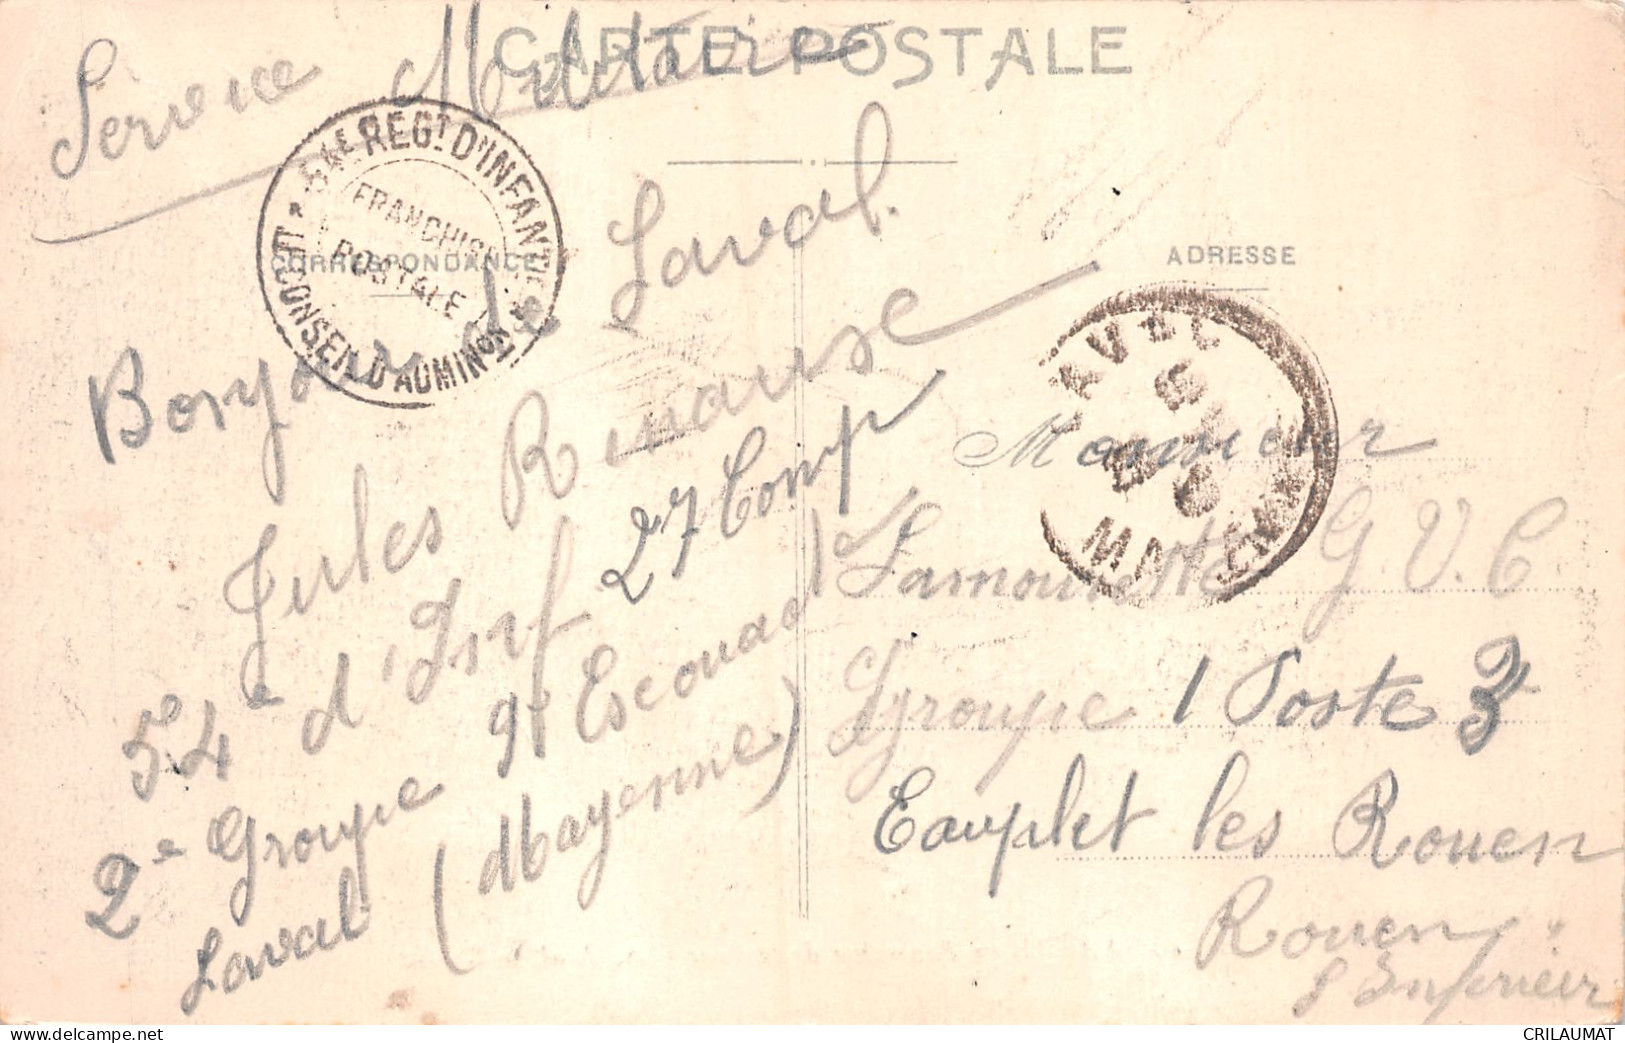 CARTE POSTALE
Service Militaire
54e REGT D'INFANTERIE
CONSEIL D'ADMINON
FRANCHISE
POSTALE
CORRESPONDANCE
Bonjour de Laval
Jules Renause
54e d'Inf 27 Comp
2e Groupe 9e Escouade
Laval (Mayenne)
ADRESSE
LAVAL
MAYENNE
Monsieur
Lamourette G.V.C
groupe 1 Poste 3
Eauplet les Rouen
Rouen
S Inferieir
CRILAUMAT